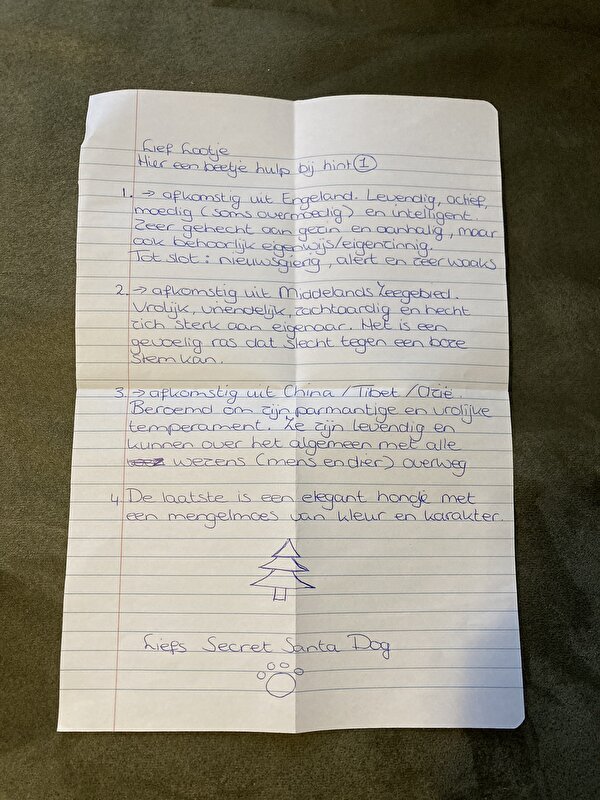 Lief Lootje
Hier een beetje hulp bij hint 1
1. → afkomstig uit Engeland. Levendig, actief,
moedig (soms overmoedig) en intelligent.
Zeer gehecht aan gezin en aanhalig, maar
ook behoorlijk eigenwijs/eigenzinnig.
Tot slot: nieuwsgierig, alert en zeer waaks
2. → afkomstig uit Middelands Zeegebied.
Vrolijk, vriendelijk, zachtaardig en hecht
zich sterk aan eigenaar. Het is een
gevoelig ras dat slecht tegen een boze
stem kan.
3. → afkomstig uit China / Tibet / Ozië.
Beroemd om zijn parmantige en vrolijke
temperament. Ze zijn levendig en
kunnen over het algemeen met alle
wezens (mens en dier) overweg
4 De laatste is een elegant hondje met
een mengelmoes van kleur en karakter.
Liefs Secret Santa Dog